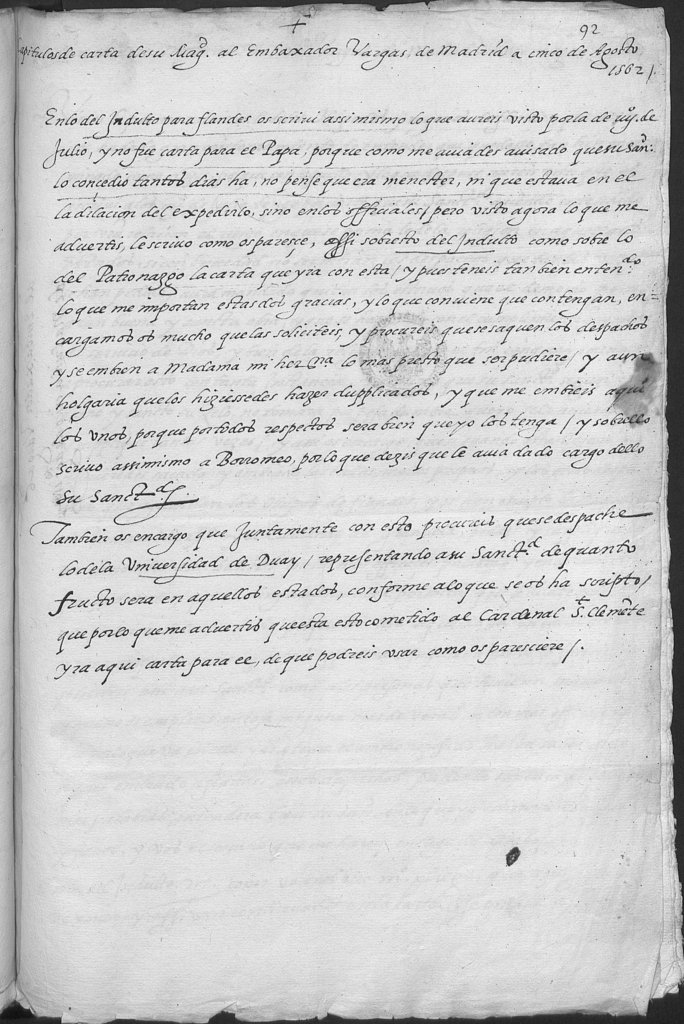 +
92
Capitulos de carta de su Mag. al Embaxador Vargas, de Madrid a cinco de Agosto
1562/.
En lo del Indulto para flandes os scrivi assi mismo lo que aureis visto por la de de
Julio, y no fue carta para el Papa, porque como me auiades auisado que su San.
lo conçedio tantos dias ha, no pense que era menester, ni que estaua en el
la dilacion del expedirlo, sino en los officiales/ pero visto agora lo que me
aduertis, le scriuo como os paresçe, assi sobresto del Indulto como sobre lo
del Patronazgo la carta que yra con esta/ y pues teneis tanbien entendo
lo que me importan estas dos gracias, y lo que conuiene que contengan, en=
cargamos os mucho que las soliciteis, y procureis que se saquen los despachos
y se embien a Madama mi herna lo mas presto que ser pudiere/ y aun
holgaria que los hiziessedes hazer dupplicados, y que me embieis aqui
los vnos, porque por todos respectos sera bien que yo los tenga/ y sobrello
scriuo assimismo a Borromeo, por lo que dezis que le auia dado cargo dello
su Sanctd/.
Tambien os encargo que Juntamente con esto procureis que se despache
lo de la Vniuersidad de Duay/ representando a su Sanctd de quanto
fructo sera en aquellos estados, conforme a lo que se os ha scripto/
que por lo que me aduertis que esta esto cometido al Cardenal St. Clemente
yra aqui carta para el, de que podreis vsar como os paresciere/.